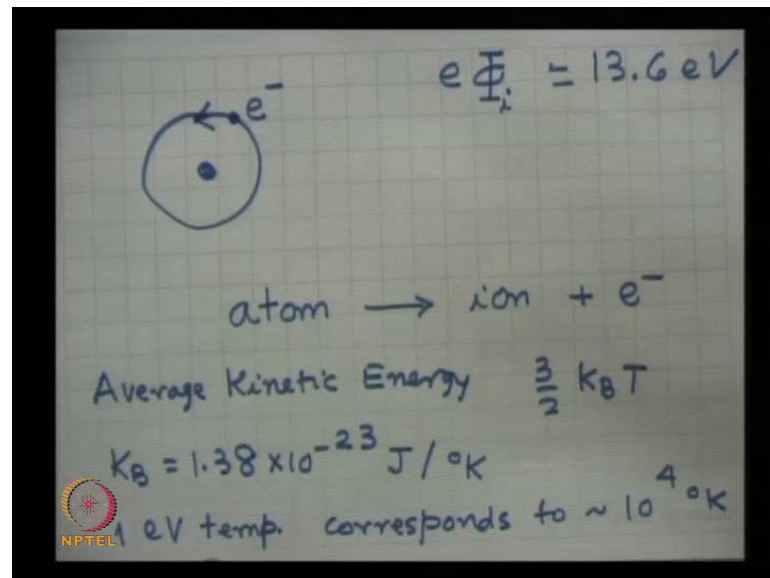 e⁻
eΦᵢ = 13.6 eV
atom → ion + e⁻
Average Kinetic Energy 3/2 K_B T
K_B = 1.38 × 10⁻²³ J/°K
1 eV temp. corresponds to ~ 10⁴ °K
NPTEL